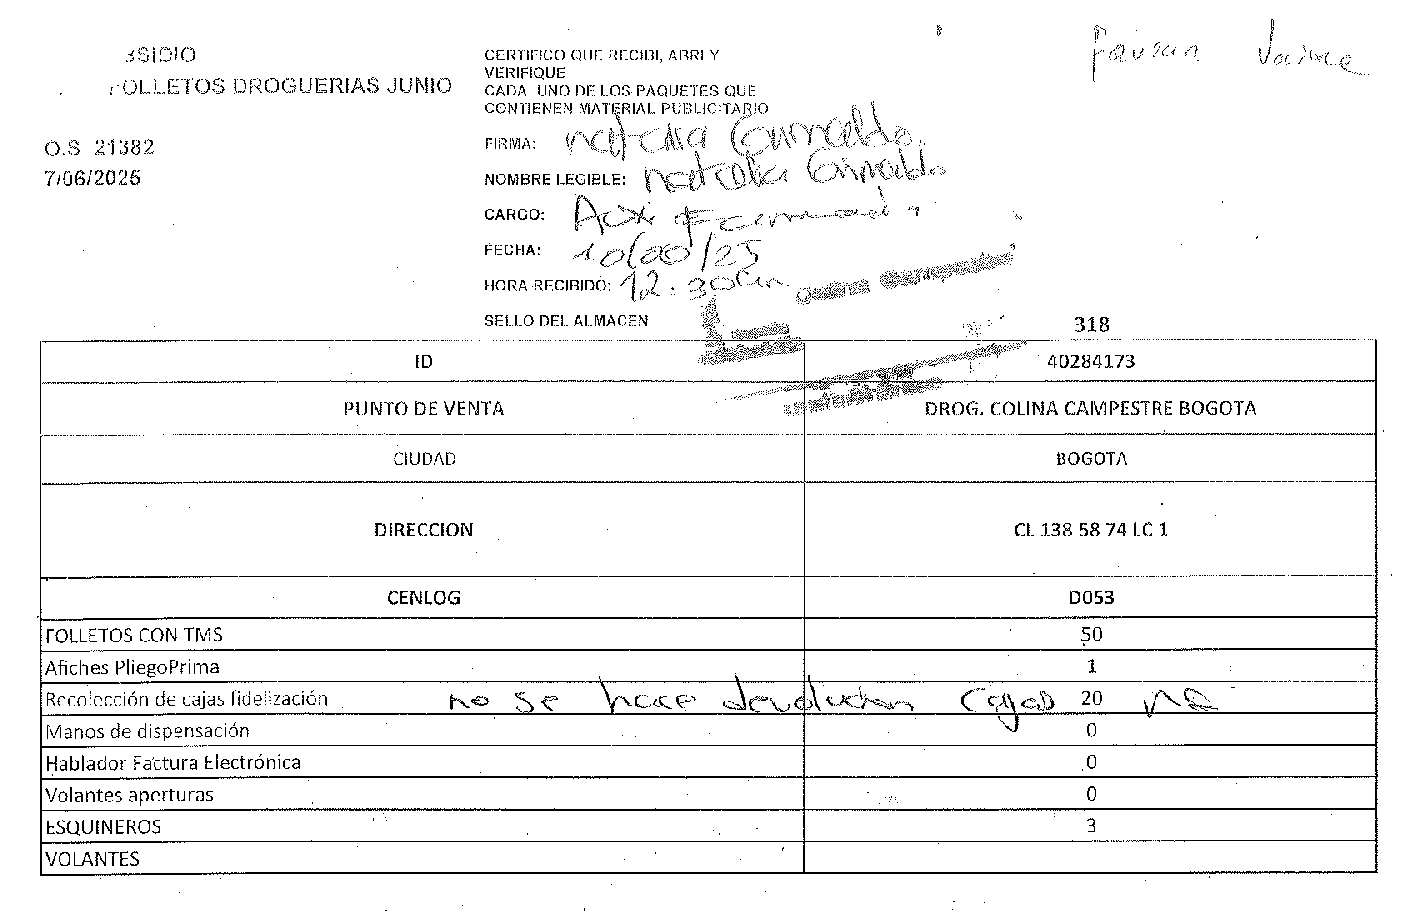 SIDIO
OLLETOS DROGUERIAS JUNIO
O.S 21382
7/06/2025
CERTIFICO QUE RECIBI, ABRI Y
VERIFIQUE
CADA UNO DE LOS PAQUETES QUE
CONTIENEN MATERIAL PUBLICITARIO
FIRMA: natalia Grimaldo.
NOMBRE LEGIBLE: natalia Grimaldo
CARGO:
FECHA:
HORA RECIBIDO: 12:30
SELLO DEL ALMACEN
318
ID 40284173
PUNTO DE VENTA DROG. COLINA CAMPESTRE BOGOTA
CIUDAD BOGOTA
DIRECCION CL 138 58 74 LC 1
CENLOG D053
FOLLETOS CON TMS 50
Afiches PliegoPrima 1
Recolección de cajas fidelización no se hace devolucion cajas 20
Manos de dispensación 0
Hablador Factura Electrónica 0
Volantes aperturas 0
ESQUINEROS 3
VOLANTES